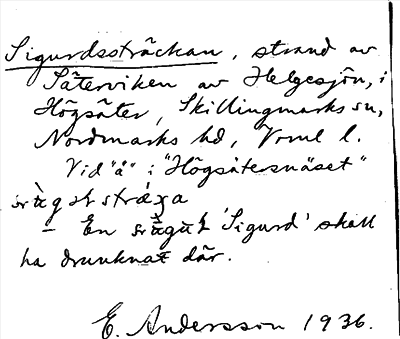 Sigurdssträckan, strand av
Säterviken av Helgesjön, i
Högsäter, Skillingmarks sn,
Nordmarks hd, Vrml l.
Vid "å" i "Högsätersnäset"
- En 'Sigurd' skall
ha drunknat där.
E. Andersson 1936.